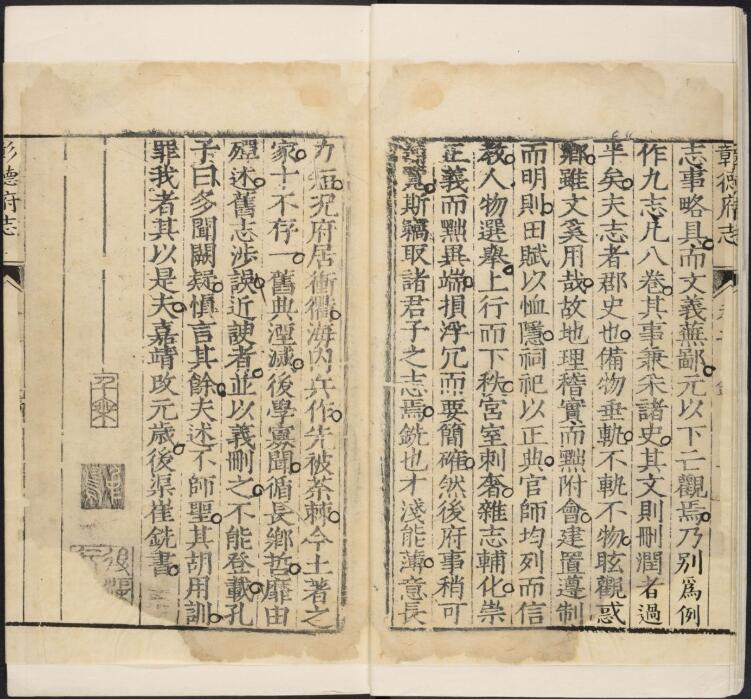 彰德府志
志事略具而文義蕪鄙元以下亡觀焉乃別爲例
作九志凡八卷其事兼采諸史其文則刪潤者過
半矣夫志者郡史也備物垂軌不軌不物眩觀惑
鄉雖文奚用哉故地理稽實而黜附會建置遵制
而明則田賦以恤隱祠祀以正典官師均列而信
教人物選舉上行而下秩宮室刺奢雜志輔化崇
正義而黜異端損浮冗而要簡確然後府事稍可
覽斯竊取諸君子之志焉銑也才淺能薄意長
力短況府居衝衢海內兵作先被荼棘今土著之
家十不存一舊典湮滅後學寡聞循長鄉哲靡由
殫述舊志涉誤近諛者並以義刪之不能登載孔
子曰多聞闕疑慎言其餘夫述不師聖其胡用訓
罪我者其以是夫嘉靖改元歳後渠崔銑書
彰德府志